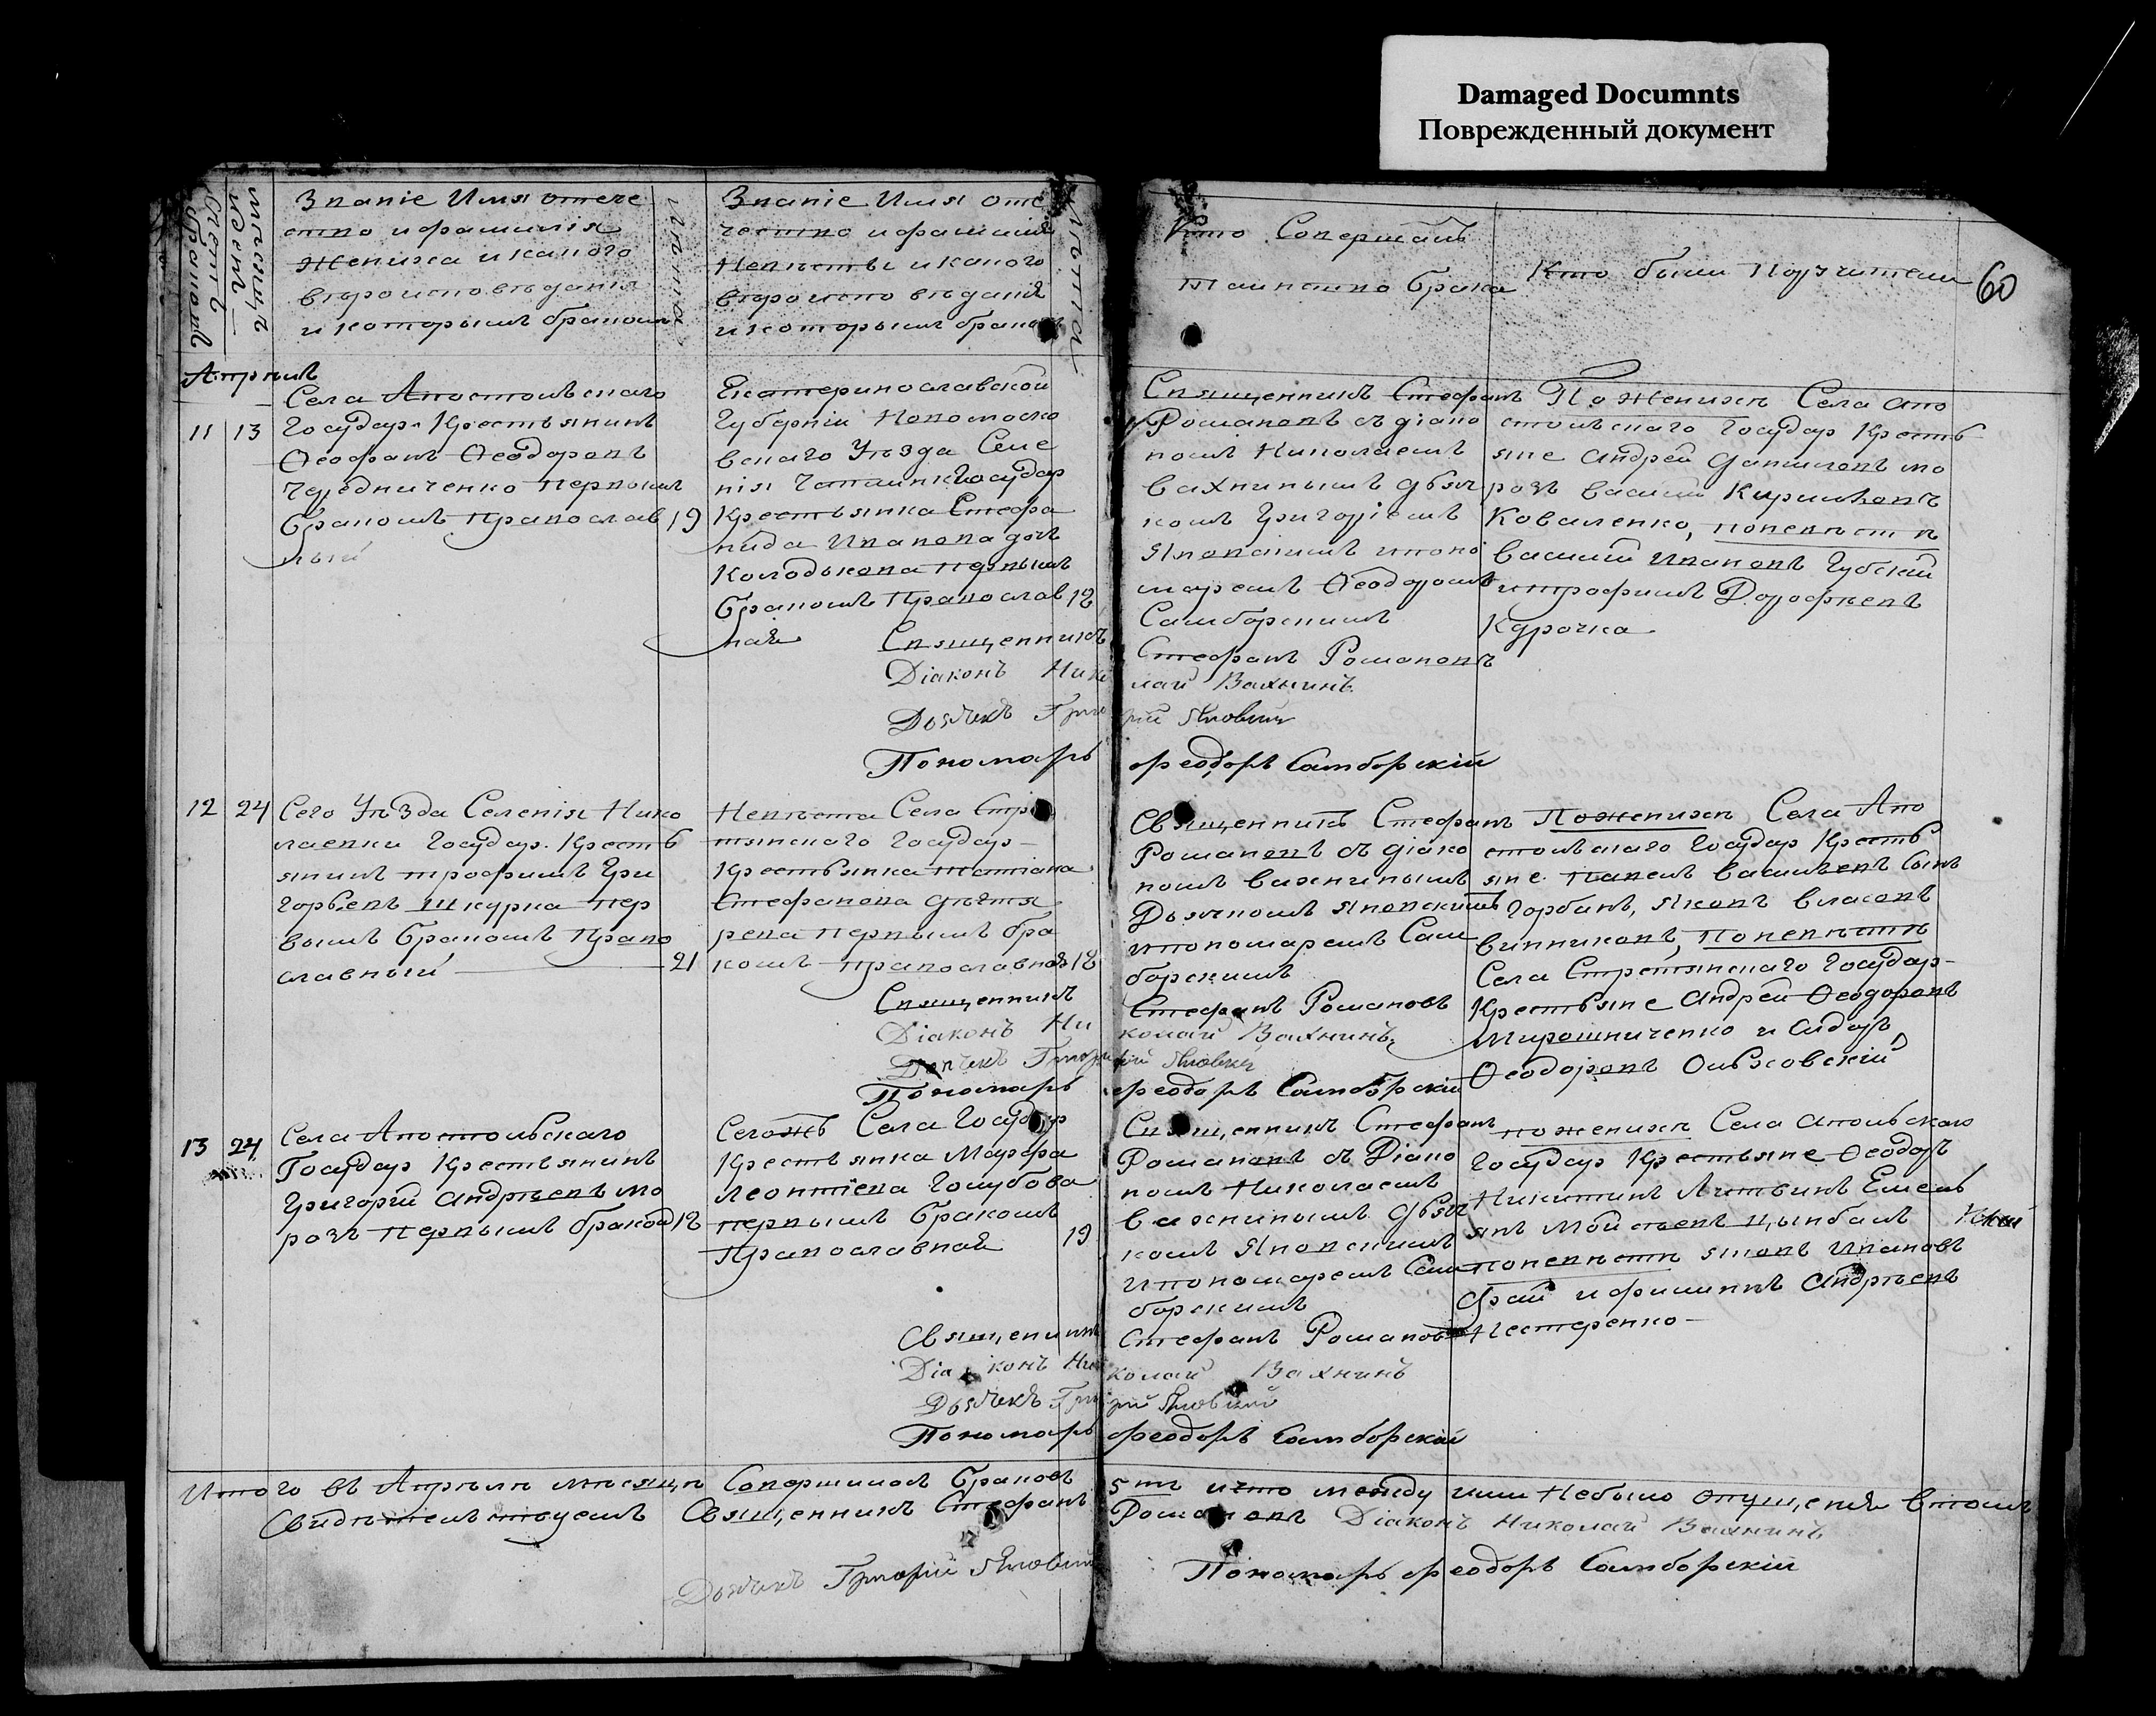 Damaged Documnts
Поврежденный документ
Счетъ браковъ
мѣсяцъ и день
Званіе Имя отече
ство и фамилія
Жениха и какого
вѣроисповѣданія
и которымъ бракомъ
лѣта
Званіе Имя оте
чество и фамилія
Невѣсты и какого
вѣроисповѣданія
и которымъ бракомъ
лѣта
Кто Совершалъ
таинство брака
Кто были Поручители
60
Апрѣль
11 13
Села Апостольскаго
Государ. Крестьянинъ
Ѳеофанъ Ѳеодоровъ
Чередниченко первымъ
бракомъ православ
ный
19
Екатеринославской
Губерніи Новомоско
вскаго Уѣзда Селе
нія Государ
Крестьянка Стефа
нида Иванова дочь
Колодькова первымъ
бракомъ православ
ная
18
Священникъ Стефанъ
Романовъ съ діако
номъ Николаемъ
Вахнинымъ дьяч
комъ Григоріемъ
Яновскимъ и поно
маремъ Ѳеодоромъ
Самборскимъ
По Женихѣ Села Апо
стольскаго Государ Кресть
яне Андрей Даниловъ Мо
розъ Василій Кириловъ
Коваленко, по невѣстѣ
Василій Ивановъ Губскій
и трофимъ Дорофѣевъ
Курочка
Священникъ Стефанъ Романовъ
Діаконъ Николай Вахнинъ
Дьячекъ Григорій Яновскій
Пономарь Феодоръ Самборскій
12 24
Сего Уѣзда Селенія Нико
лаевки Государ. Кресть
янинъ трофимъ Гри
горьевъ Шкурка пер
вымъ бракомъ Право
славный
21
Невѣста Села Стрѣ
тянскаго Государ
Крестьянка татіана
Стефанова
рева первымъ бра
комъ православная
18
Священникъ Стефанъ
Романовъ съ діако
номъ Вахнинымъ
Дьячкомъ Яновскимъ
и пономаремъ Сам
борскимъ
По женихѣ Села Апо
стольскаго Государ Кресть
яне Павелъ Васильевъ сынъ
Горбань, Яковъ Власовъ
Винниковъ, По невѣстѣ
Села Стретянскаго Государ
Крестьяне Андрей Ѳеодоровъ
Мирошниченко и Сидоръ
Ѳеодоровъ Ольховскій
Священникъ Стефанъ Романовъ
Діаконъ Николай Вахнинъ
Дьячекъ Григорій Яновскій
Пономарь Феодоръ Самборскій
13 24
Села Апостольскаго
Государ Крестьянинъ
Григорій Андрѣевъ Мо
розъ первымъ бракомъ
18
Сегожъ Села Государ
Крестьянка Марфа
Леонтіева Голубова
первымъ бракомъ
Православная
19
Священникъ Стефанъ
Романовъ съ Діако
номъ Николаемъ
Вахнинымъ дьяч
комъ Яновскимъ
и пономаремъ Сам
борскимъ
по женихѣ Села Апольскаго
Государ Крестьяне Ѳеодоръ
Никитинъ Литвинъ Емель
янъ Мойсѣевъ Цымбалъ
по невѣстѣ Ивановъ
и филиппъ Андрѣевъ
Нестеренко
Священникъ Стефанъ Романовъ
Діаконъ Николай Вахнинъ
Дьячекъ Григорій Яновскій
Пономарь Феодоръ Самборскій
Итого въ Апрѣлѣ мѣсяцѣ Совершилось браковъ 5ть и что между ими Небыло опущенія втомъ
Свидѣтельствуемъ Священникъ Стефанъ Романовъ Діаконъ Николай Вахнинъ
Дьячекъ Григорій Яновскій Пономарь Феодоръ Самборскій